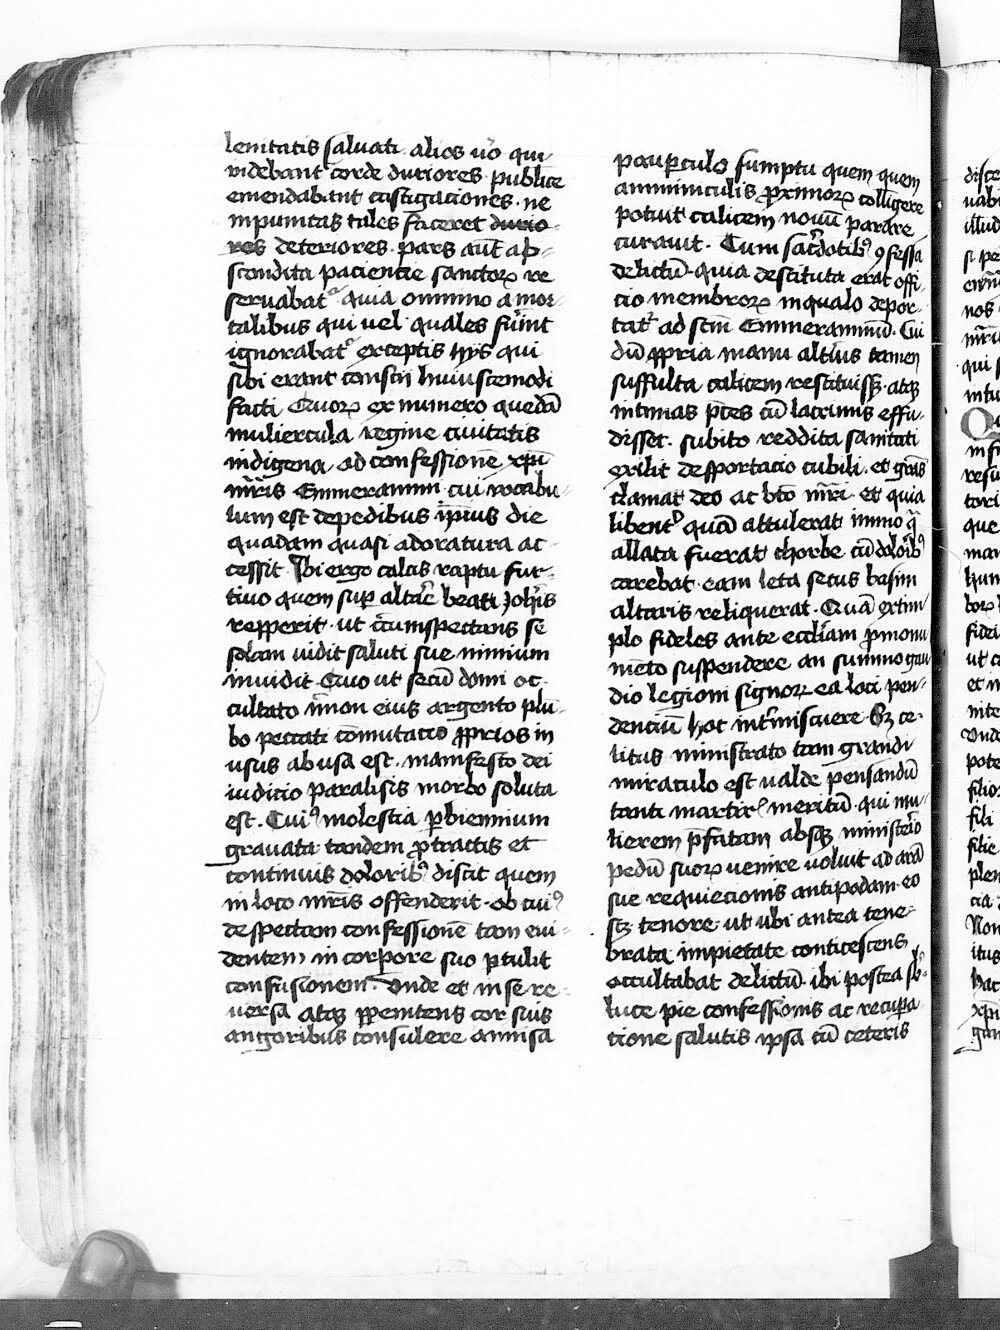 lenitatis salvati. alios uo᷎ qui
videbant corde duriores publice
emendabant castigaciones. ne
inpunitas tales faceret durio
res deteriores. pars aut̄ ab-
scondita paciencie sanctoꝝ re
servabatᷣ quia omnino a mor-
talibus qui vel quales fu᷎int
ignorabatᷣ exceptis hijs qui
sibi erant conscii huiuscemodi
facti Quoꝝ ex numero quedā
muliercula regine civitatis
indigena ad confessionē xpi
mr̄is Emmerammi cui vocabu-
lum est depedibus ip̄ius die
quadam quasi adoratura ac-
cessit. Ibi ergo calcis raptu fur-
tivo quem suꝑ altar᷎ beati Joh̄is
repperit. ut circumspectans se
solam vidit saluti sue nimium
invidit. Quo ut secū domi oc-
cultato in̄non eius argento plu-
bo peccati cōmutato ꝓprios in
usus abusa est. manifesto dei
iudicio paralisis morbo soluta
est. Cuiꝰ molestia ꝑ biennium
gravata tandem ꝓtractis et
continuis doloribꝰ discit quem
in loco mr̄is offenderit. ob cuiꝰ
despectam confessionē tam evi-
dentem in corpore suo ꝑtulit
confusionem. Unde et in se re-
versa atqꝫ ꝑpenitens cor suis
angoribus consulere amissa
pauꝑculo sumptu quem quem
amminiculis ꝓximoꝝ colligere
potuit calicem novū parare
curavit. Cum sac᷎dotibꝰ ꝯfessa
delictū. quia destituta erat offi-
cio membroꝝ in qualo depor-
tatᷣ ad sc̄m Emmerammū. Cui
dū ꝓpria manu altius tamen
suffulta calicem restituissꝫ. atqꝫ
intimas p̄ces cū lacrimis effu-
disset. subito reddita sanitati
exilit desportacio cubili. et gr̄as
clamat deo ac bt̄o mr̄i. et quia
libentᷣ quā attulerat immo q̄
allata fuerat chorbe cū doloribꝰ
carebat. eam leta secus basim
altaris reliquerat. Quā ex tem-
plo fideles ante eccl̄iam ꝓ monu-
mēto suspendere an summo gau-
dio legioni signoꝝ ea loci pen-
denciū hoc int᷎miscuere. Sꝫ ce-
litus ministrato tam grandi
miraculo est valde pensandū
tanti martir᷎ meritū. qui mu-
lierem p̄fatam absqꝫ ministerio
pedū suoꝝ venire voluit ad arā
sue requiecionis antipodam. eo
sꝫ tenore. ut ubi antea tene-
brata impietate conticescens
occultabat delictū. ibi postea sb̄-
luce pie confessionis ac recupa-
tione salutis ipsa cū ceteris